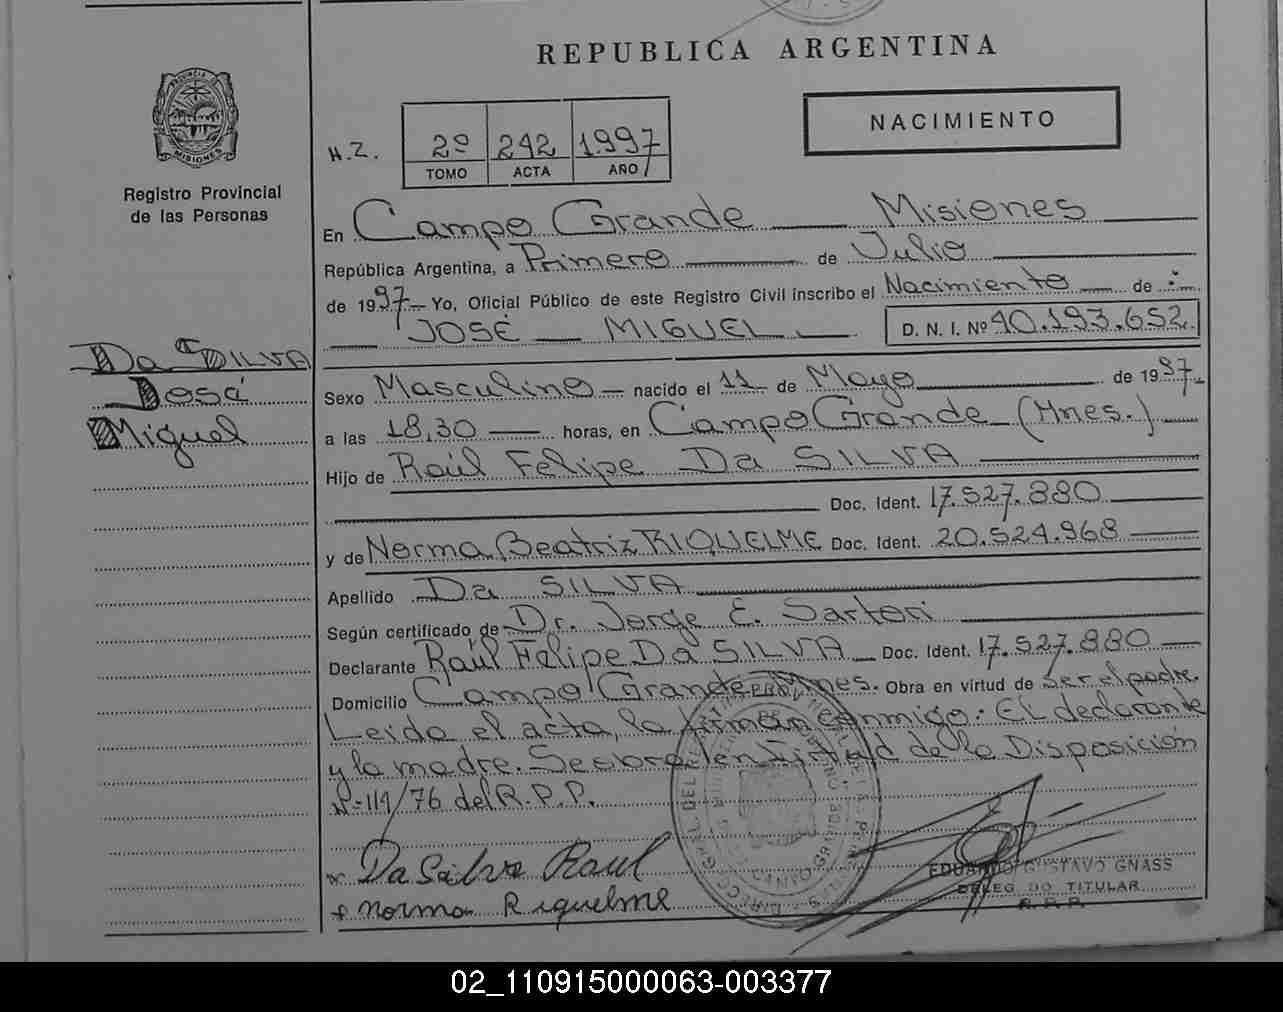 REPUBLICA ARGENTINA
NACIMIENTO
H.Z.
2º 242 1997
TOMO ACTA AÑO
PROVINCIA DE MISIONES
Registro Provincial
de las Personas
En Campo Grande Misiones
República Argentina, a Primero de Julio
de 1997 Yo, Oficial Público de este Registro Civil inscribo el Nacimiento de :
JOSÉ MIGUEL D. N. I. Nº 40.193.652
Da SILVA
José
Miguel
Sexo Masculino nacido el 11 de Mayo de 1997
a las 18,30 horas, en Campo Grande (Mnes.)
Hijo de Raúl Felipe Da SILVA
Doc. Ident. 17.527.880
y de Norma Beatriz RIQUELME Doc. Ident. 20.524.968
Apellido Da SILVA
Según certificado de Dr. Jorge E. Sartori
Declarante Raúl Felipe Da SILVA Doc. Ident. 17.527.880
Domicilio Campo Grande Mnes. Obra en virtud de ser el padre.
Leida el acta, la firman conmigo: El declarante
y la madre. Se labra en virtud de la Disposición
Nº 119/76 del R.P.P.
Da Silva Raul
Norma Riquelme
EDUARDO GUSTAVO GNASS
DELEGADO TITULAR
R.P.P.
02_110915000063-003377